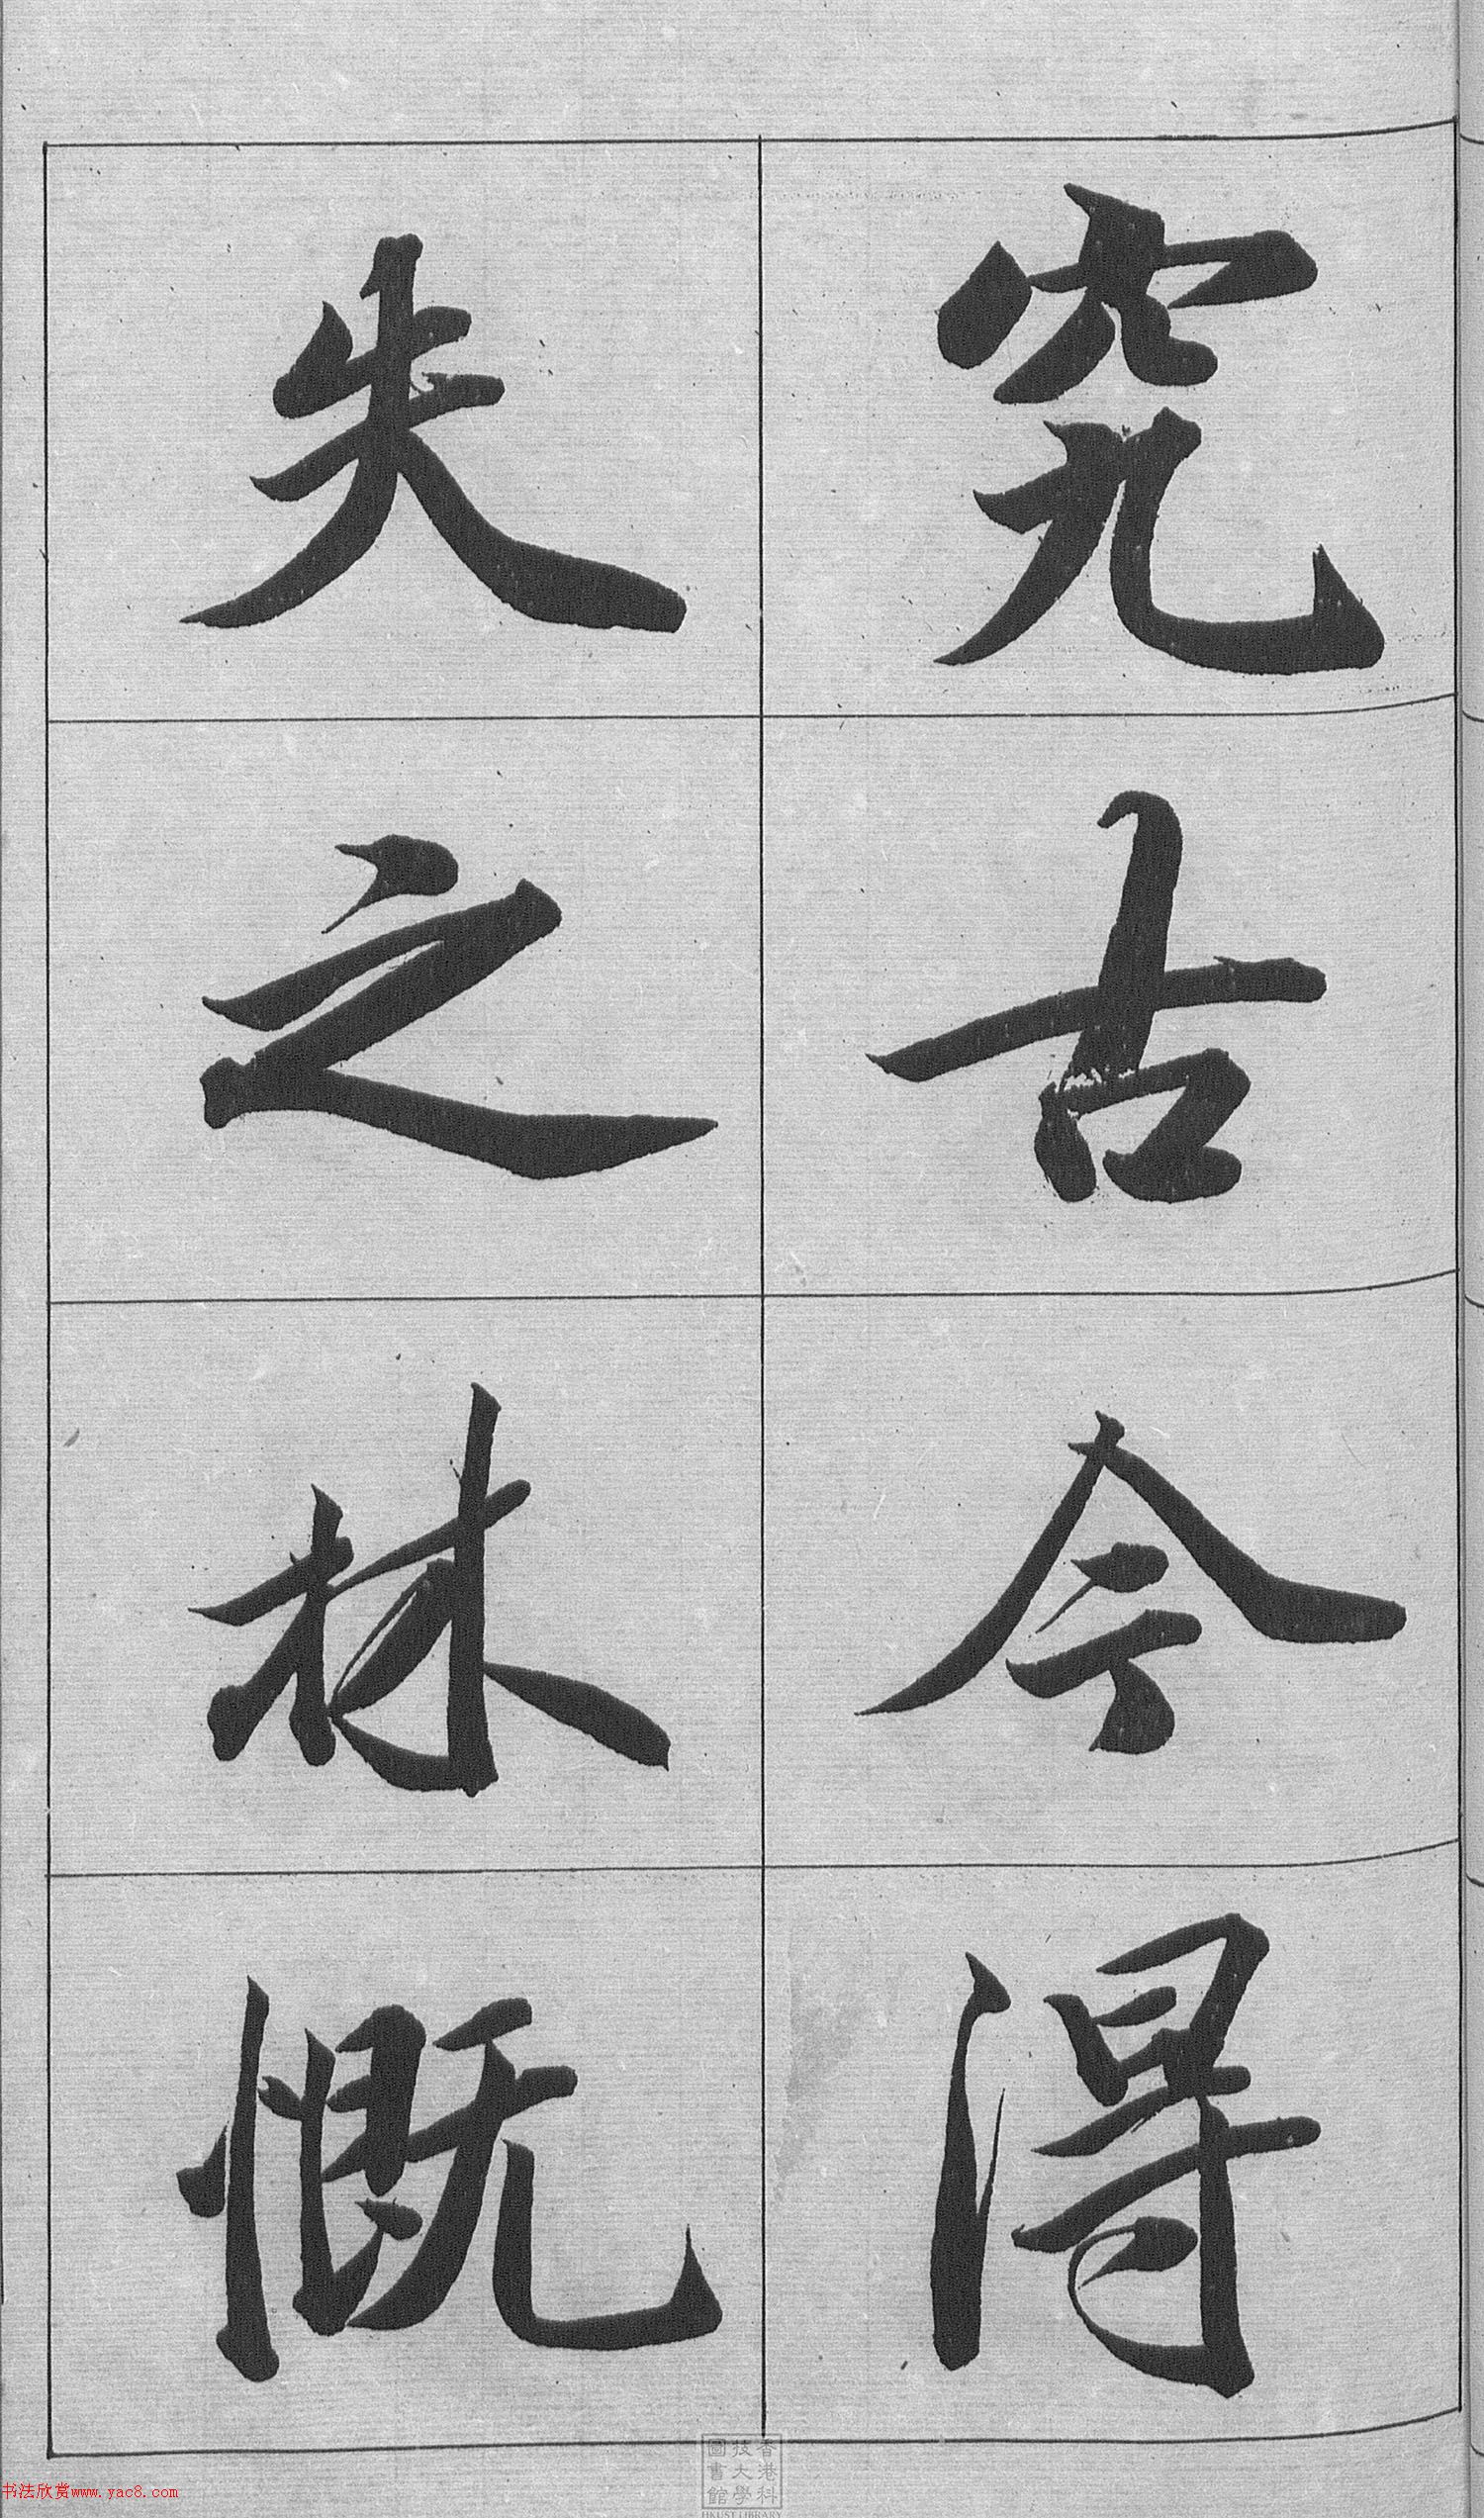 究古今得
失之林慨
香港科
技大學
圖書館
HKUST LIBRARY
书法欣赏www.yac8.com